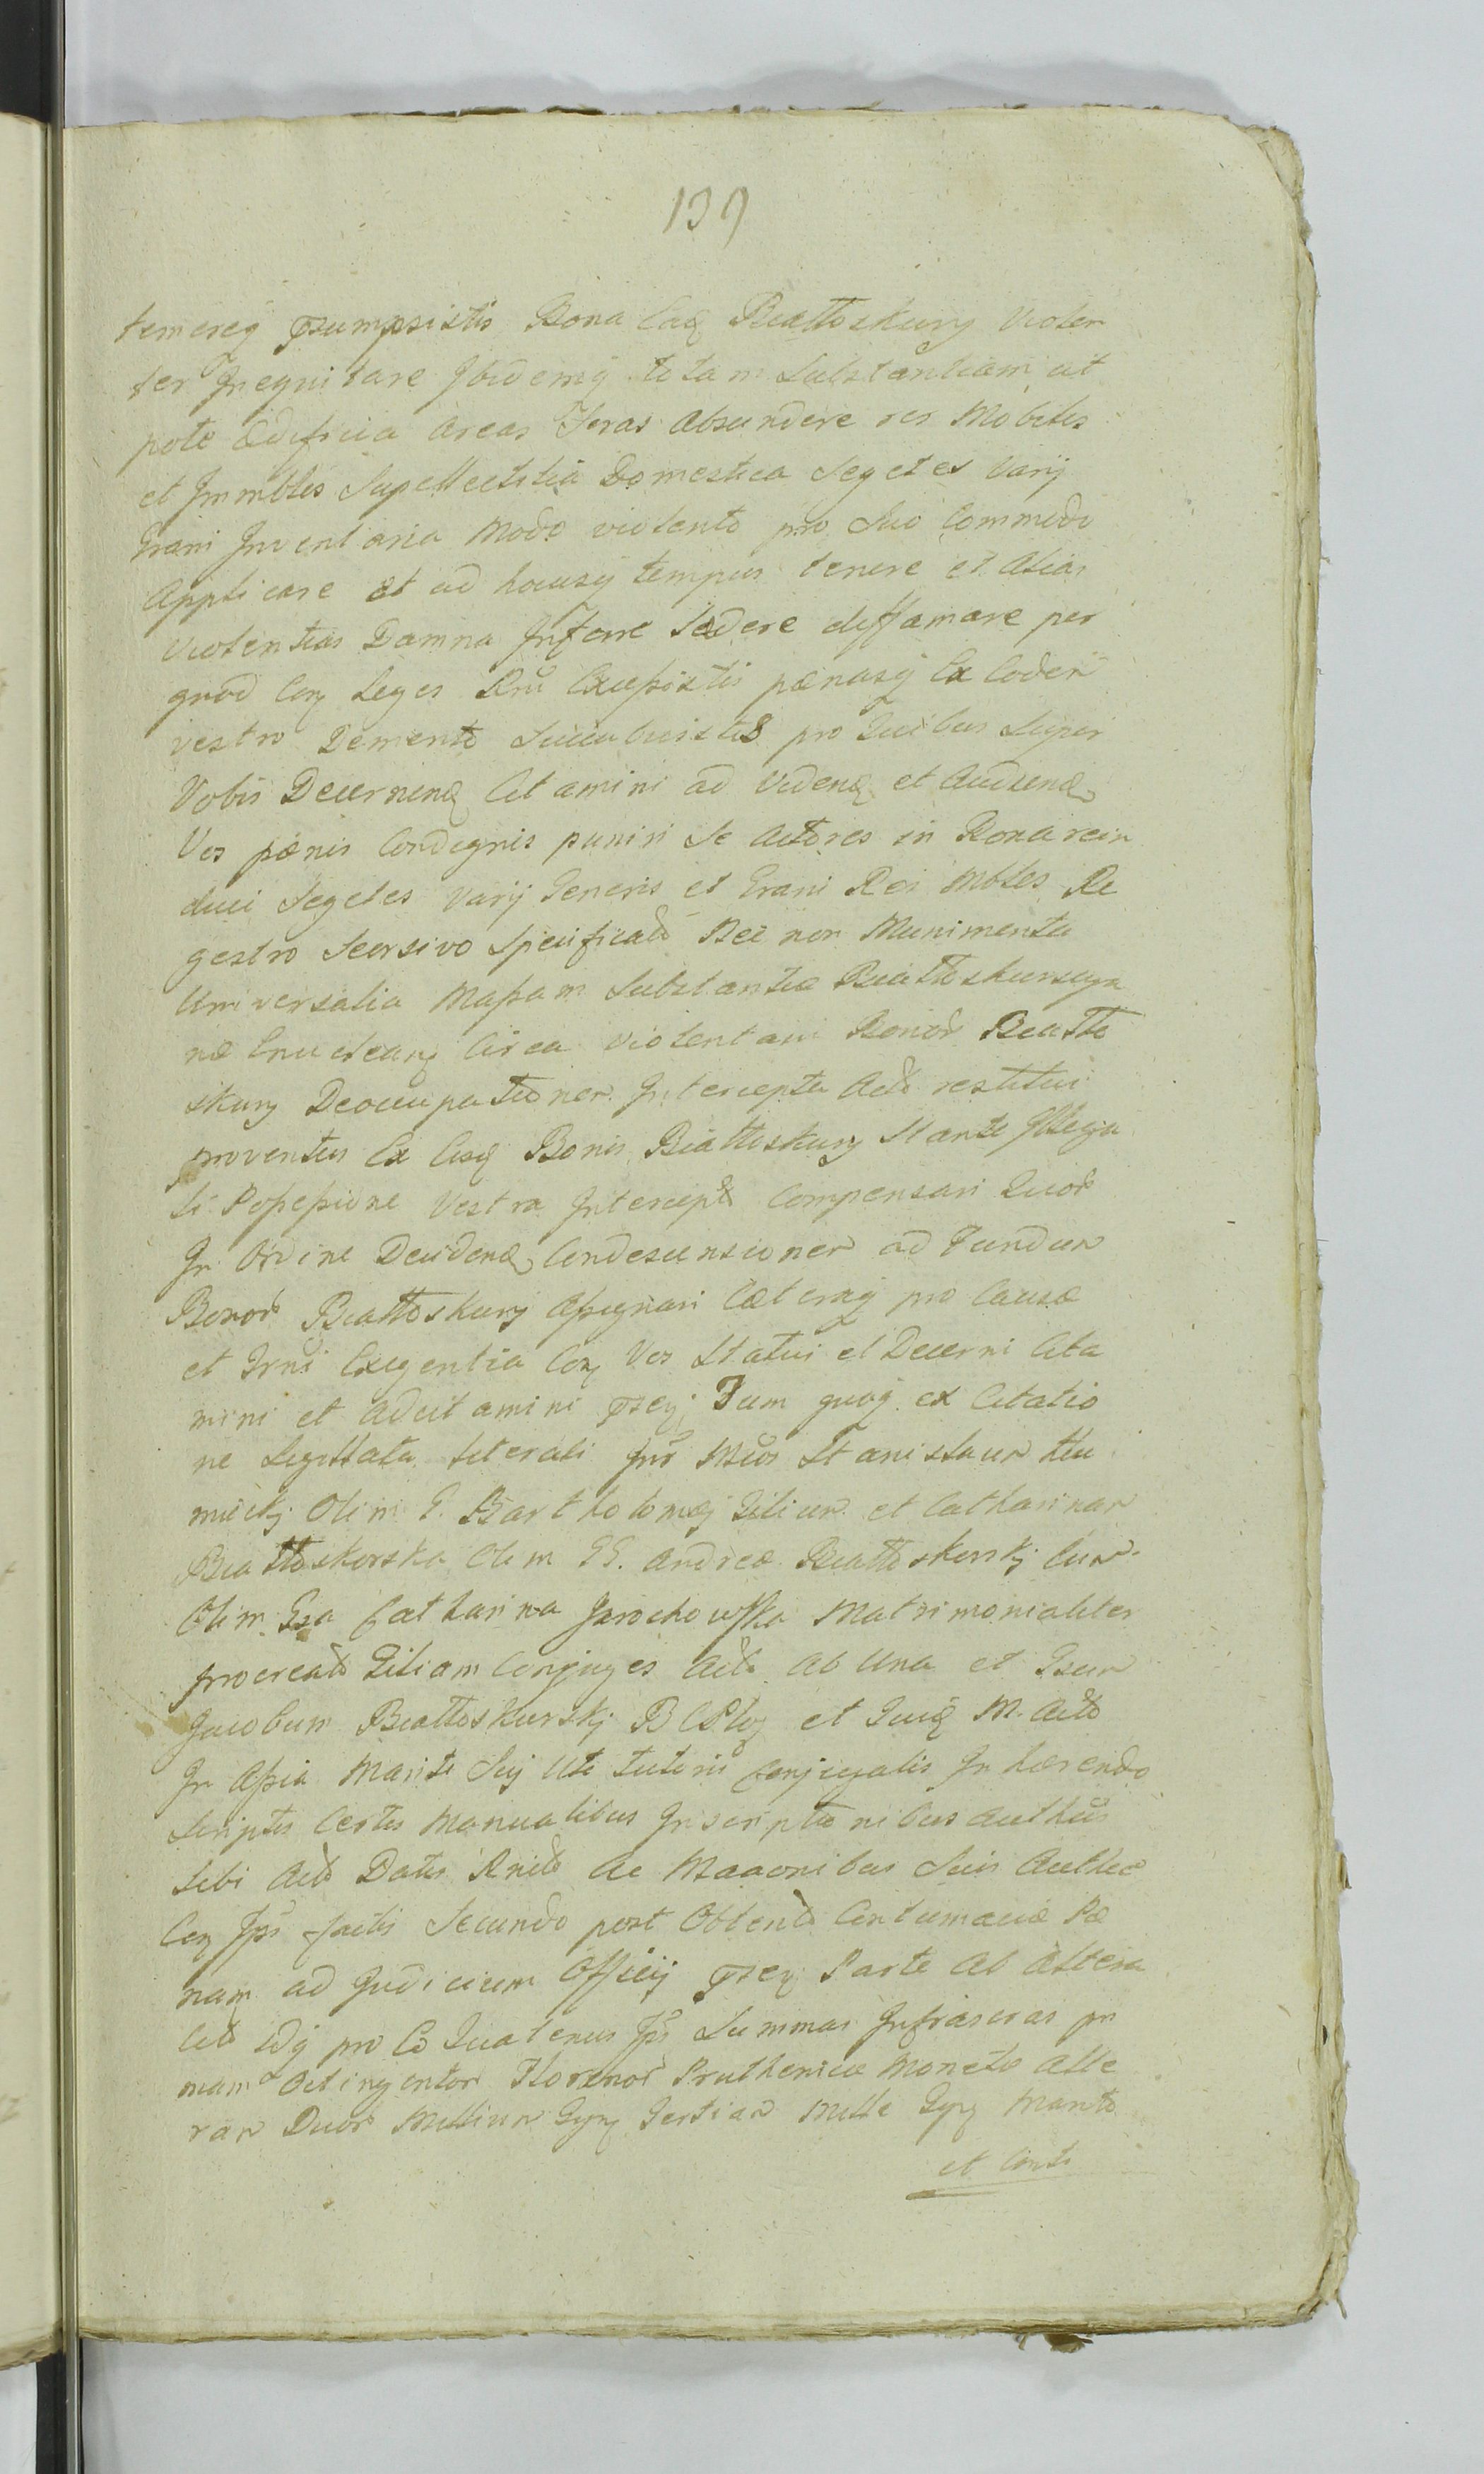 139
temereq przumpsistis Bona Eaq Białłoskury Violen
ter Inequitare Ibidemq totam Substantiam ut
pote Ædificia Areas Seras Abscindere res Mobiles
et Immbles Supellectilia Domestica Segetes Varij
Grani Inventaria Modo violento pro Suo Commodo
Applicare et ad hocusq tempus tenere et Alias
violentias Damna Inferre Lædere diffamare per
quod Con Leges Rni Excessistis pænasq Ex Eodem
vestro Demerito Succubuistis pro Quibus Super
Vobis Decernend Citamini ad Vidend et Audiend
Vos pænis Condignis puniri Se Actores in Bona rein
duci Segetes Varij Generis et Grani Res Mbles Re
gestro Seorsivo Specificatas Nec non Munimenta
Universalia Massam Substantiæ Białłoskursciana
næ Enucleanq Circa violentam Bonor Białło
skury Deoccupationem Intercepta Actis restitui
proventus Ex Eisq Bonis Białłoskury Stante Illega
li Possessione Vestra Intercept Compensari Quor
In Ordine Decidend Condescensionem ad Fundum
Bonor Białłoskury Assignari Cæteraq pro Causæ
et Jrnsi Exigentia Con Vos Statui et Decerni Cita
mini et Adcitamini przq Tum quoq ex Citatio
ne Legittata literali Ins Mios Stanislaum
mieckj Olim G. Bartholomæj Filium et Catharinam
Białłoskorska Olim GG. Andreæ Białłoskurskj Cum
Olim Gsa Catharina Jarochowska Matrimonialiter
procreat Filiam Conjuges Acts Ab Una et Gsum
Jacobum Białłoskurskj et Quid M. Acto
In Assia Mariti Sui Uti tutoris Conjugalis Inhærendo
Scriptis Certis Manualibus Inscriptionibus Authcis
Sibi Act Datis Rnit Ac Maaonibus Suis Authce
Con Ips factis Secundo post Obtent Contumaciæ Pæ
nam ad Judicium Officij przq Parte Ab Altera
Cit Idq pro Eo Quatenus Ips Summas Infrascras pri
mam Octingentor Florenor Pruthenicæ Monetæ Alte
ram Duor Millium Tertiam Mille
et Conti